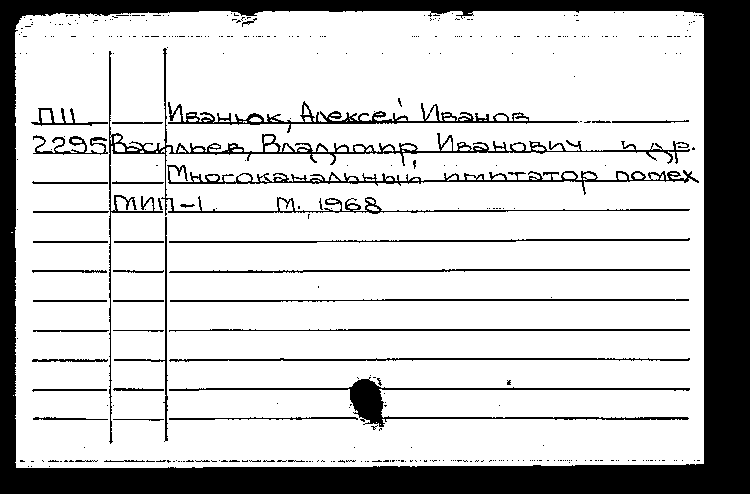 П11 Иванюк, Алексей Иванов
2295 Васильев, Владимир Иванович и др.
Многоканальный имитатор помех
МИП-1. М., 1968